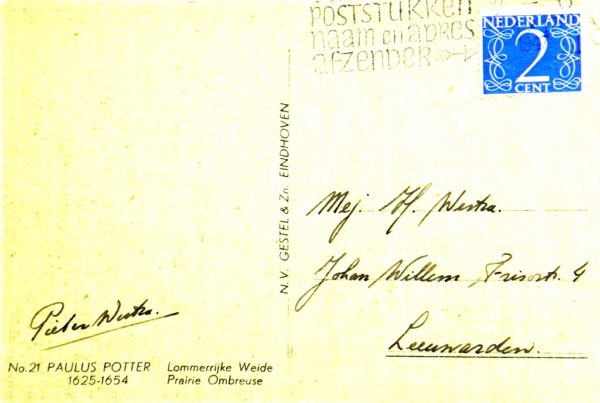 POSTSTUKKEN
naam en adres
afzender
NEDERLAND
2
CENT
N.V. GESTEL & Zn. EINDHOVEN
Mej. H. Westra.
Johan Willem Frisostr. 4
Leeuwarden.
Pieter Westra.
No. 21 PAULUS POTTER
1625-1654
Lommerrijke Weide
Prairie Ombreuse